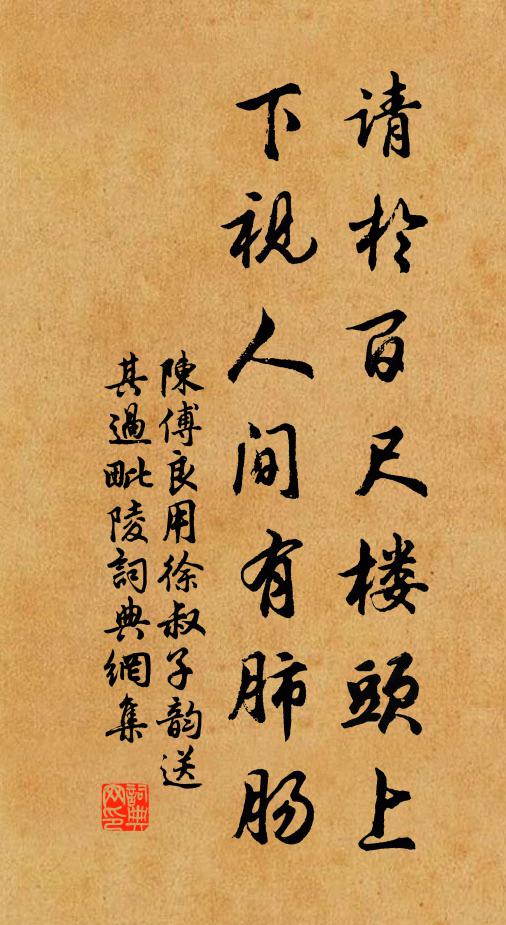 请於百尺楼頭上
下視人间有肺肠
陳傅良用徐叔子韵送
其過毗陵詞典網集
詞典网印